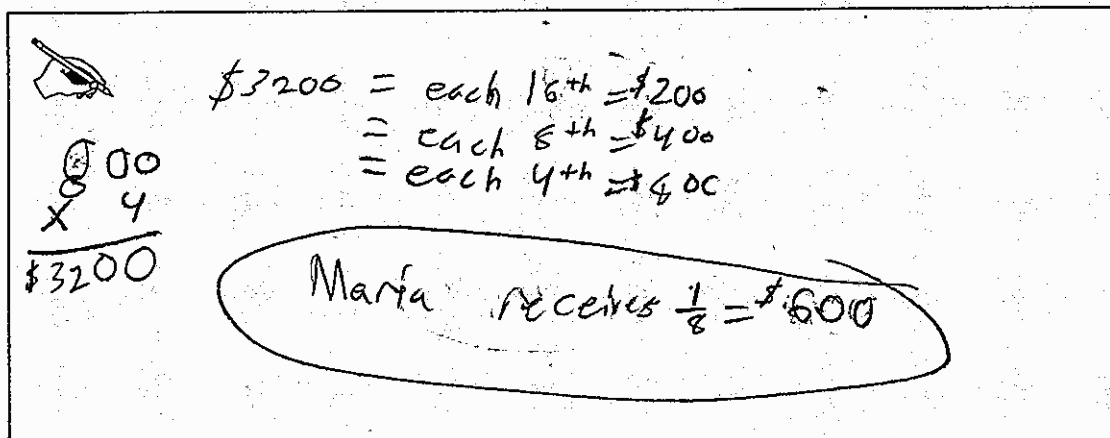 $3200 = each 16th = $200
= each 8th = $400
= each 4th = $800
800
x 4
$3200
Maria receives 1/8 = $600